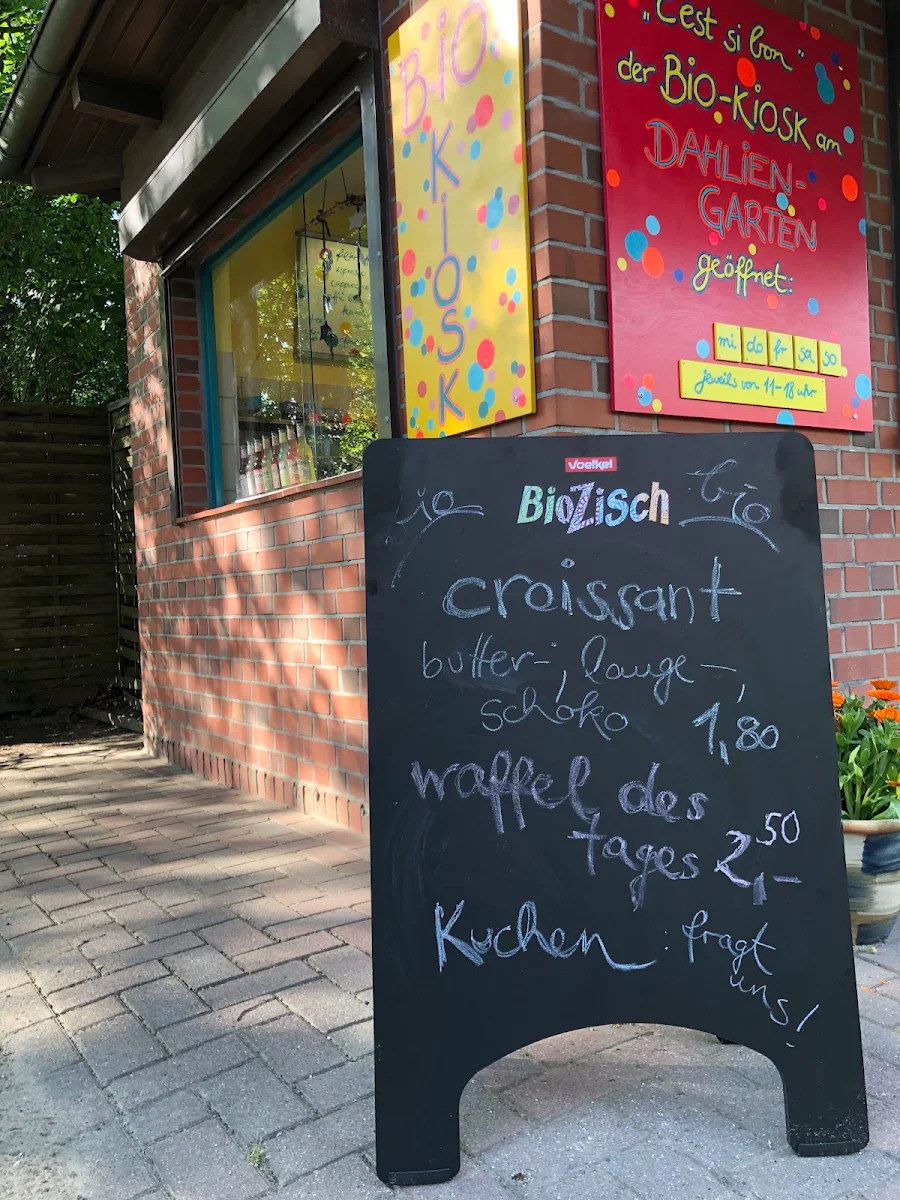 BiO
KiOSK
„C'est si bon"
der BiO-KiOSK am
DAHLiEN-
GARTEN
geöffnet:
mi do fr sa so
jeweils von 11-18 uhr
Voelkel
BioZisch
bio
bio
croissant
butter-, lauge-,
schoko 1,80
waffel des
tages 2,50
Kuchen: fragt
uns!